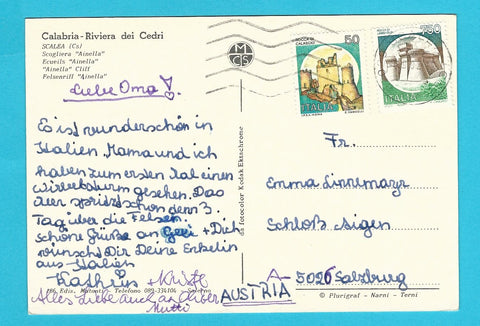 Calabria-Riviera dei Cedri
SCALEA (Cs)
Scogliera "Ainella"
Ecueils "Ainella"
"Ainella" Cliff
Felsenriff "Ainella"
Liebe Oma!
Es ist wunderschön in
Italien. Mama und ich
haben zum ersten Mal einen
Wirbelsturm gesehen. Das
Meer spritzt schon den 3.
Tag über die Felsen.
schöne Grüße an + Dich
wünscht Dir Deine Enkelin
aus Italien
Kathrin
Alles Liebe auch an
Mutti
166 Edis. Telefono 089-334104 - Salerno
da fotocolor Kodak Ektachrome
MCS
50
ITALIA
750
ITALIA
Fr.
Emma Linnemayr
Schloß Aigen
A-5026 Salzburg
AUSTRIA
© Plurigraf - Narni - Terni